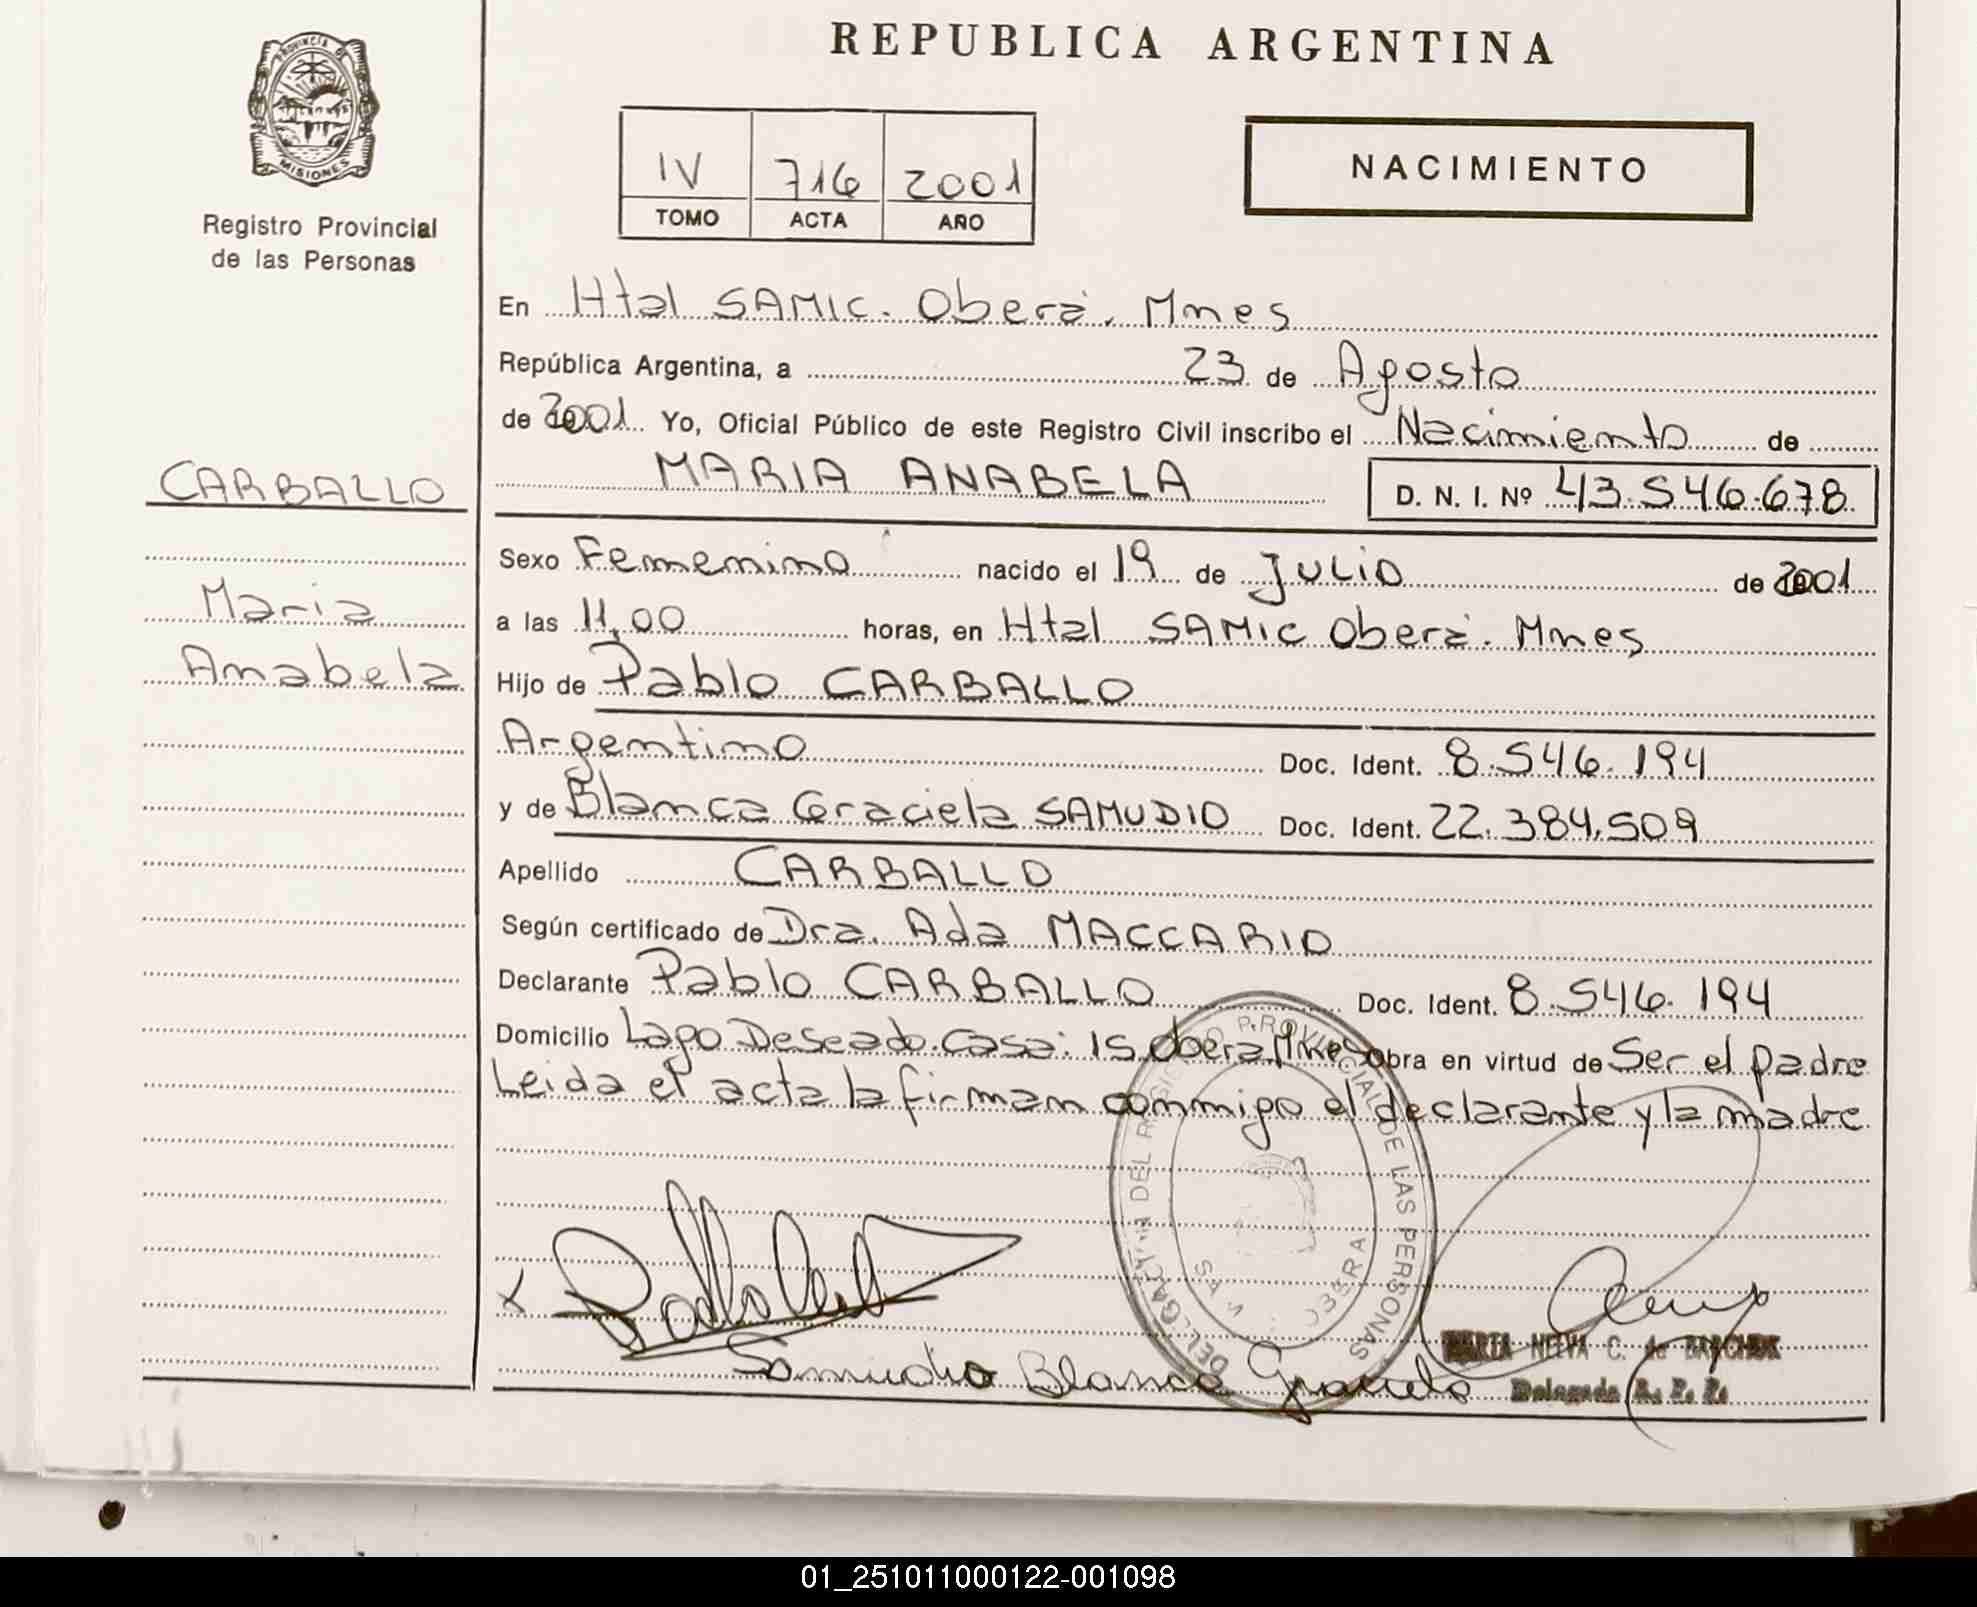 REPUBLICA ARGENTINA
PROVINCIA DE
MISIONES
Registro Provincial
de las Personas
IV 716 2001
TOMO ACTA AÑO
NACIMIENTO
En Htal SAMIC. Oberá. Mnes
República Argentina, a 23 de Agosto
de 2001 Yo, Oficial Público de este Registro Civil inscribo el Nacimiento de
MARIA ANABELA D. N. I. Nº 43.546.678
CARBALLO
Maria
Anabela
Sexo Femenino nacido el 19 de Julio de 2001
a las 11,00 horas, en Htal SAMIC Oberá. Mnes
Hijo de Pablo CARBALLO
Argentino Doc. Ident. 8.546.194
y de Blanca Graciela SAMUDIO Doc. Ident. 22.384.509
Apellido CARBALLO
Según certificado de Dra. Ada MACCARIO
Declarante Pablo CARBALLO Doc. Ident. 8.546.194
Domicilio Lago Deseado. Casa: 15. Obera Mnes Obra en virtud de Ser el padre
Leida el acta la firman conmigo el declarante y la madre
DEL REGISTRO PROVINCIAL DE LAS PERSONAS
Samudio Blanca Graciela
NELVA C. de
Delegada R. P. P.
01_251011000122-001098